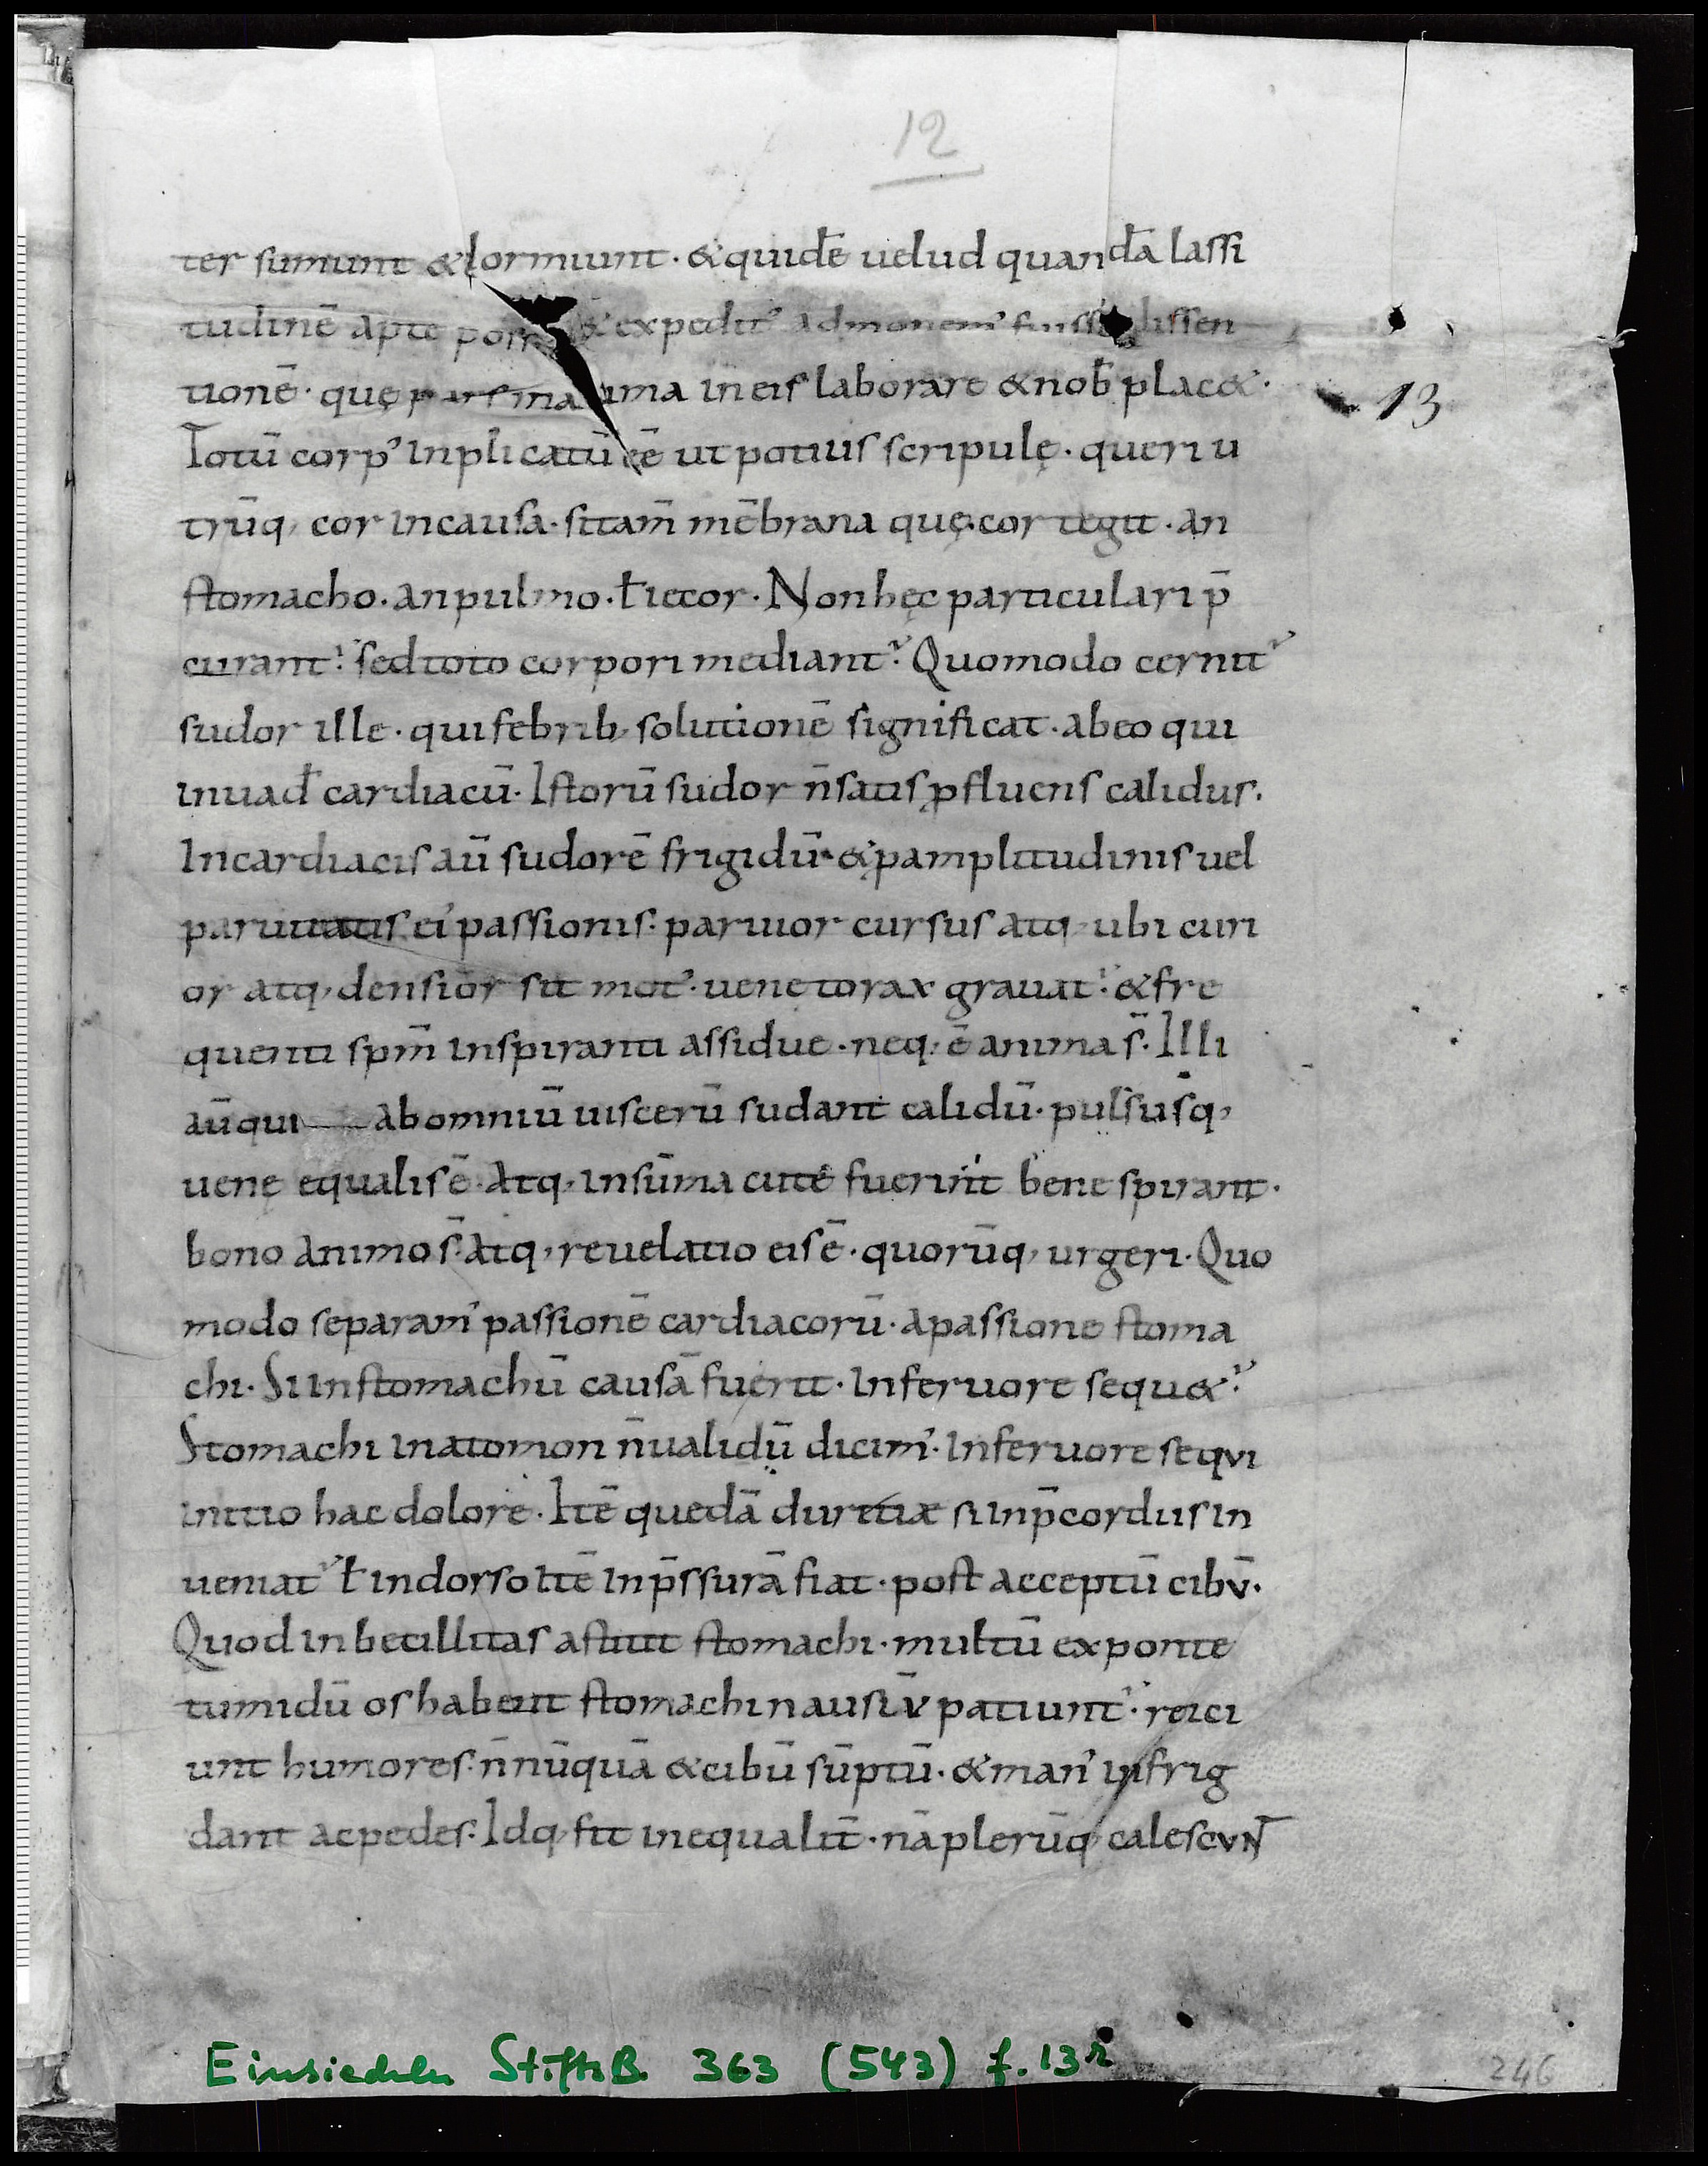 12
ter sumunt & dormiunt · & quidē uelud quandā lassi
tudinē apte & expedit᾽ admonem᾽ dissen
tionē · quę ima in eis laborare & nob̄ plac& ·
13
Totū corp᾽ inplicatū eē ut potius scripulę · queri u
trūq, cor in causa · sitam̄ mēbrana quę cor tegit · an
stomacho · an pulmo · ł iecor · Non hęc particulari p̄
curant᾽ · sed toto corpori mediant᾽ · Quomodo cernit᾽
sudor ille · qui febrib, solutionē significat · ab eo qui
inuad̄ cardiacū · Istorū sudor n̄ satis ꝓfluens calidus ·
In cardiacis aū sudorē frigidū · & ꝑ amplitudinis uel
paruitatis ei᾽ passionis · paruior cursus atq, ubi curi
or atq, densior sit mot᾽ · uenę torax grauat᾽ · & fre
quenti spm̄ inspiranti assidue · neq, ē anima s̄ · Illi
aū qui ab omniū uiscerū sudant calidū · pulsus̄q,
uenę equalis ē · Atq, in sūma cutē fuerint bene spirant ·
bono animo s̄ · atq, reuelatio eis ē · quorūq, urgeri · Quo
modo separam᾽ passionē cardiacorū · a passione stoma
chi · Si in stomachū causā fuerit · in feruore sequ&᾽ ·
Stomachi in atomon n̄ ualidū dicim᾽ · in feruore sequi
initio hac dolore · Itē quedā duritiæ si in p̄cordiis in
ueniat᾽ ł in dorso itē in p̄ssurā fiat · post acceptū cibū ·
Quod inbecillitas astitit stomachi · multū ex ponte
tumidū os habent stomachi nausiū patiunt᾽ · reici
unt humores · n̄nūquā & cibū sūptū · & man᾽ infrig
dant ac pedes · Idq, fit inequalit̄ · nā plerūq, calescun̄t
Einsiedeln StiftsB. 363 (543) f. 13r
246